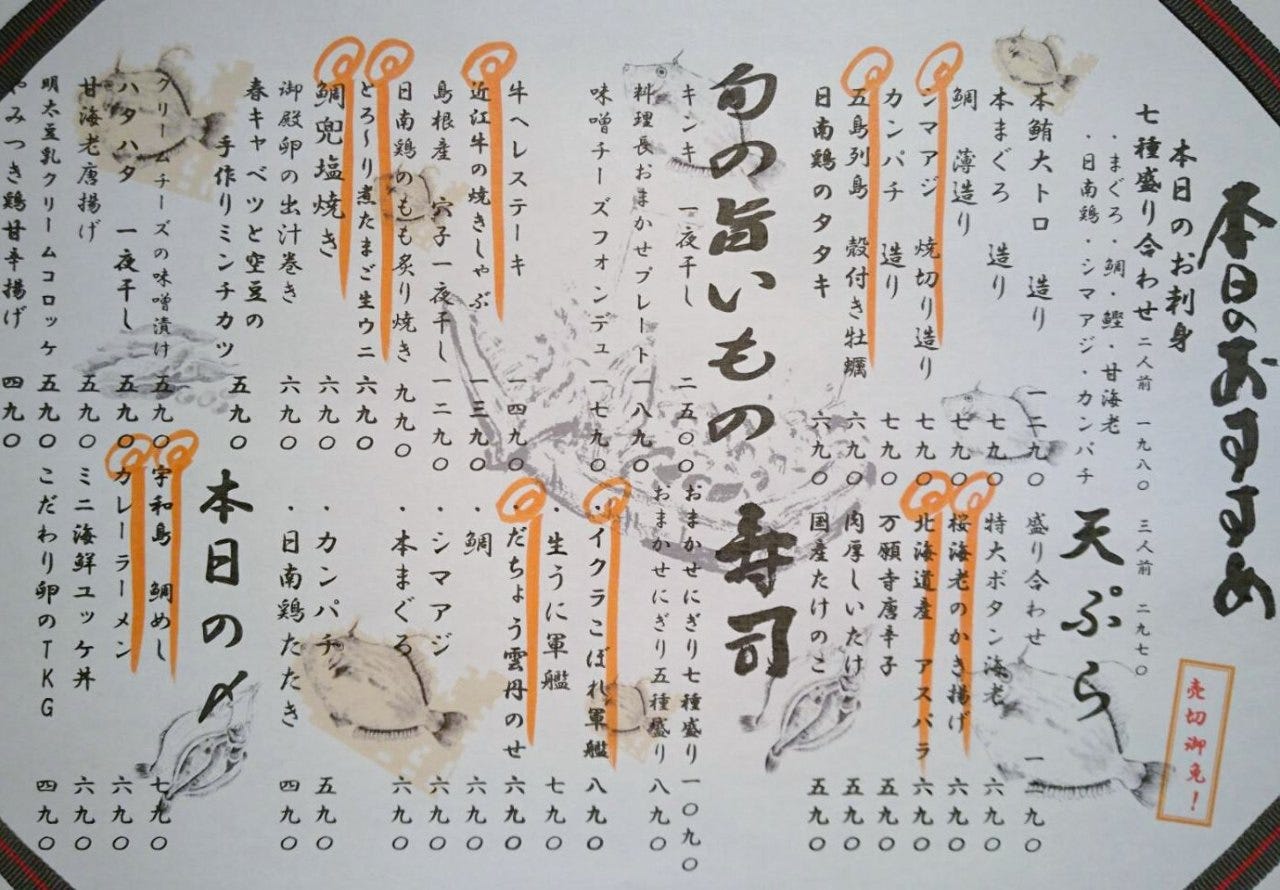 本日のおすすめ
本日のお刺身
七種盛り合わせ 二人前 一九八〇 三人前 二九七〇
・まぐろ・鯛・鰹・甘海老
・日南鶏・シマアジ・カンパチ
本鮪大トロ 造り
本まぐろ 造り 七九〇
鯛 薄造り 七九〇
シマアジ 焼切り造り 七九〇
カンパチ 造り 七九〇
五島列島 殻付き牡蠣 六九〇
日南鶏のタタキ 六九〇
天ぷら
盛り合わせ
特大ボタン海老 六九〇
桜海老のかき揚げ 六九〇
北海道産 アスパラ 六九〇
万願寺唐辛子 五九〇
肉厚しいたけ 五九〇
国産たけのこ 五九〇
売切御免!
旬の旨いもの
キンキ 一夜干し 二五〇〇
料理長おまかせプレート 一八九〇
味噌チーズフォンデュ 一七九〇
牛ヘレステーキ 一四九〇
近江牛の焼きしゃぶ 一三九〇
島根産 穴子一夜干し 一二九〇
日南鶏のもも炙り焼き 九九〇
とろ〜り煮たまご生ウニ 六九〇
鯛兜塩焼き 六九〇
御殿卵の出汁巻き 六九〇
春キャベツと空豆の
手作りミンチカツ 五九〇
クリームチーズの味噌漬け 五九〇
ハタハタ 一夜干し 五九〇
甘海老唐揚げ 五九〇
明太豆乳クリームコロッケ 五九〇
やみつき鶏甘辛揚げ 四九〇
寿司
おまかせにぎり七種盛り 一〇九〇
おまかせにぎり五種盛り 八九〇
・イクラこぼれ軍艦 八九〇
・生うに軍艦 七九〇
・だちょう雲丹のせ 六九〇
・鯛 六九〇
・シマアジ 六九〇
・本まぐろ 六九〇
・カンパチ 五九〇
・日南鶏たたき 四九〇
本日の〆
宇和島 鯛めし 七九〇
カレーラーメン 六九〇
ミニ海鮮ユッケ丼 六九〇
こだわり卵のTKG 四九〇